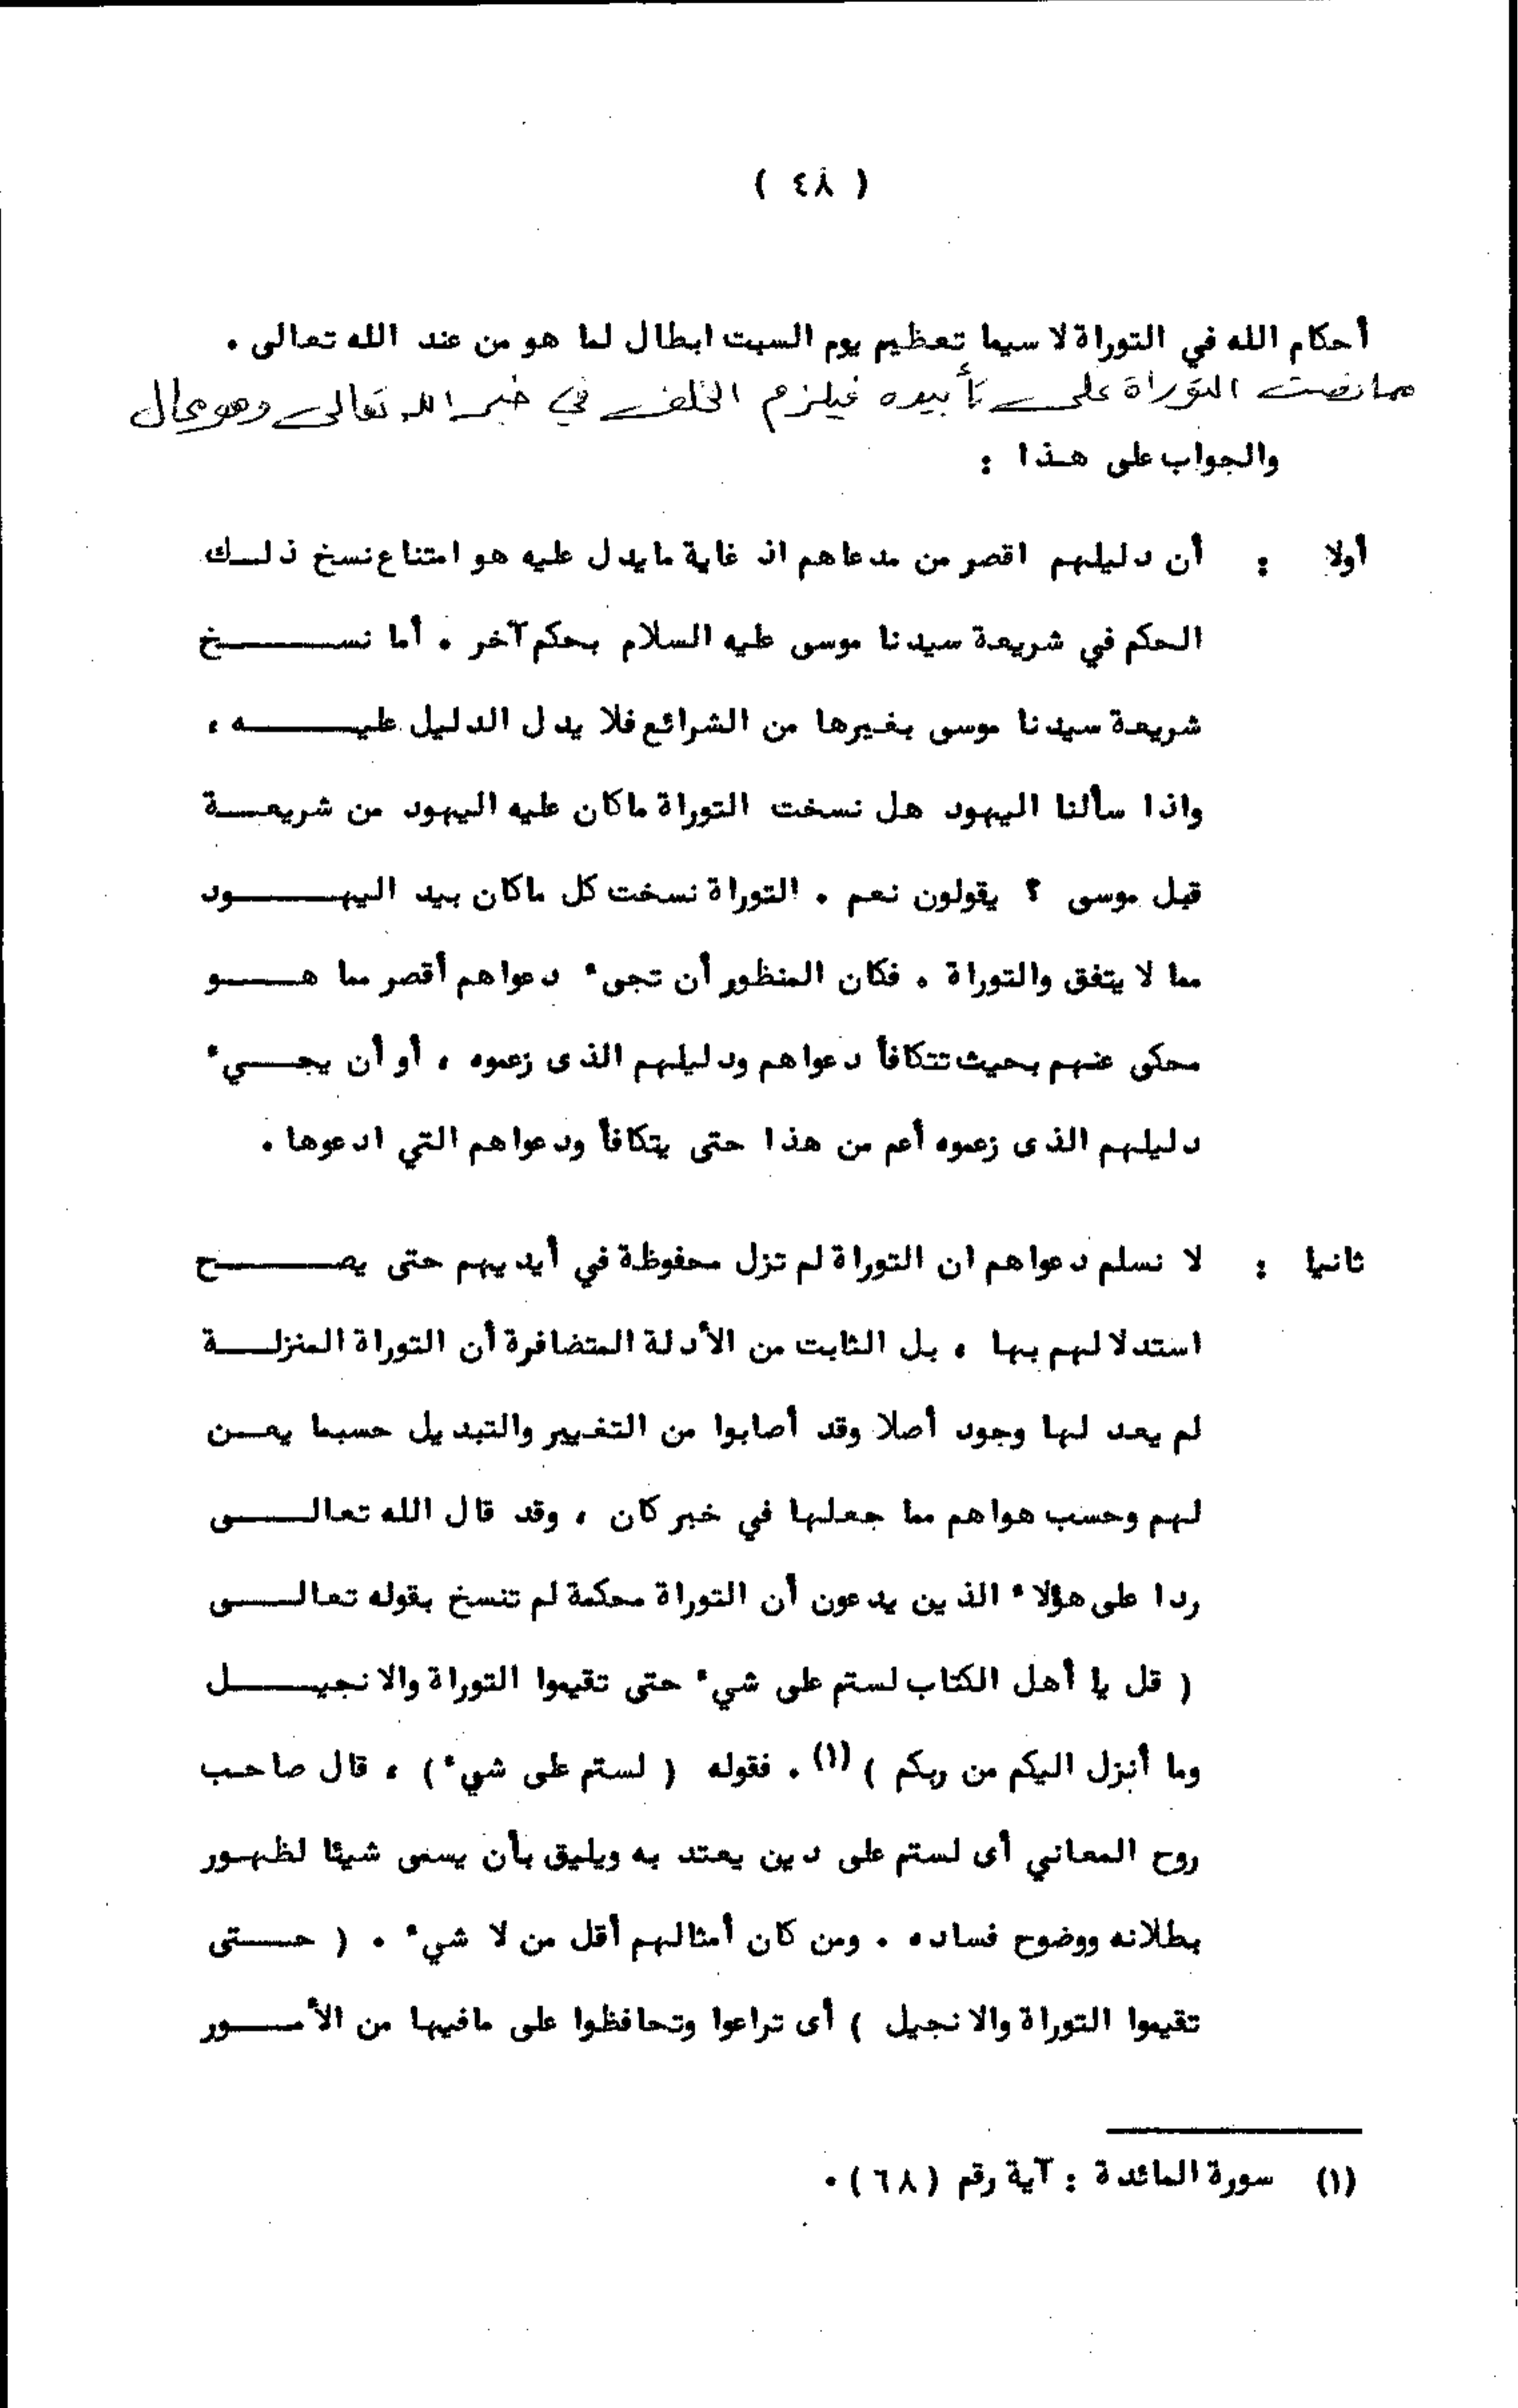 ( ٤٨ )
أحكام الله في التوراة لا سيما تعظيم يوم السبت ابطال لما هو من عند الله تعالى .
مما نصت التوراة على تأبيده فيلزم الخلف في خبر الله تعالى وهو محال
والجواب على هذا :
أولا : أن دليلهم اقصر من مدعاهم اذ غاية مايدل عليه هو امتناع نسخ ذلك
الحكم في شريعة سيدنا موسى عليه السلام بحكم آخر . أما نسخ
شريعة سيدنا موسى بغيرها من الشرائع فلا يدل الدليل عليه ،
واذا سألنا اليهود هل نسخت التوراة ماكان عليه اليهود من شريعة
قبل موسى ؟ يقولون نعم . التوراة نسخت كل ماكان بيد اليهود
مما لا يتفق والتوراة . فكان المنظور أن تجىء دعواهم أقصر مما هو
محكى عنهم بحيث تتكافأ دعواهم ودليلهم الذى زعموه ، أو أن يجيء
دليلهم الذى زعموه أعم من هذا حتى يتكافأ ودعواهم التي ادعوها .
ثانيا : لا نسلم دعواهم ان التوراة لم تزل محفوظة في أيديهم حتى يصح
استدلالهم بها ، بل الثابت من الأدلة المتضافرة أن التوراة المنزلة
لم يعد لها وجود أصلا وقد أصابوا من التغيير والتبديل حسبما يعن
لهم وحسب هواهم مما جعلها في خبر كان ، وقد قال الله تعالى
ردا على هؤلاء الذين يدعون أن التوراة محكمة لم تنسخ بقوله تعالى
( قل يا أهل الكتاب لستم على شيء حتى تقيموا التوراة والانجيل
وما أنزل اليكم من ربكم ) (١) . فقوله ( لستم على شيء ) ، قال صاحب
روح المعاني أى لستم على دين يعتد به ويليق بأن يسمى شيئا لظهور
بطلانه ووضوح فساده . ومن كان أمثالهم أقل من لا شيء . ( حتى
تقيموا التوراة والانجيل ) أى تراعوا وتحافظوا على مافيها من الأمور
(١) سورة المائدة : آية رقم (٦٨) .